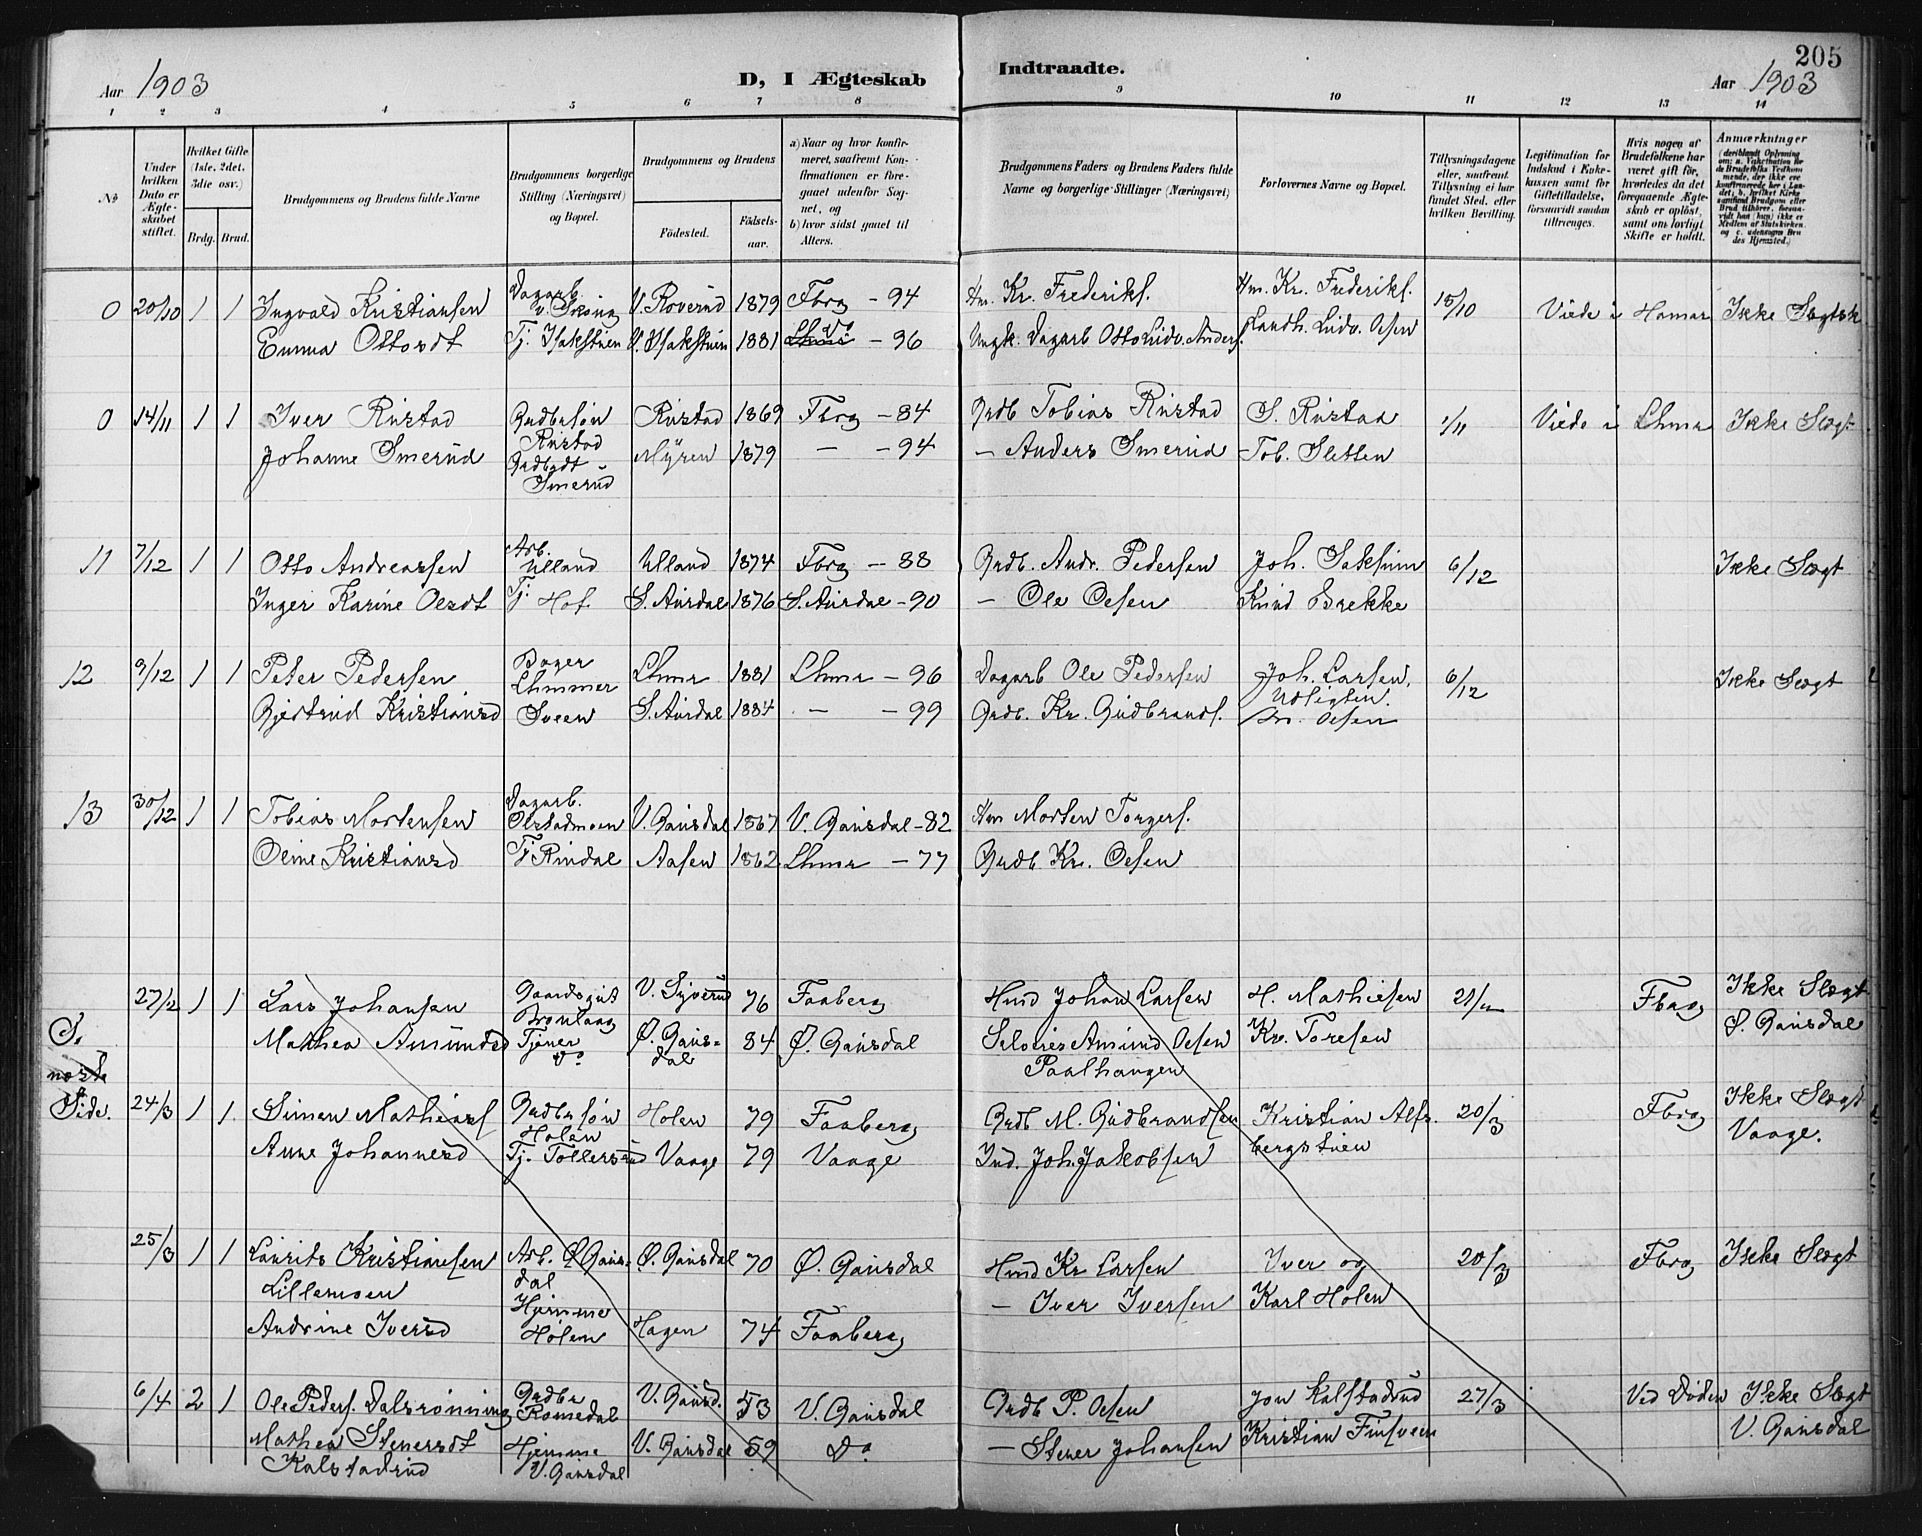 205
Aar 1903
D, I Ægteskab Indtraadte.
Aar 1903
1 2 3 4 5 6 7 8 9 10 11 12 13 14
No
Under hvilken Dato er Ægteskabet stiftet.
Hvilket Gifte (1ste, 2det, 3die osv.)
Brdg. Brud.
Brudgommens og Brudens fulde Navne
Brudgommens borgerlige Stilling (Næringsvei) og Bopæl.
Brudgommens og Brudens
Fødested.
Fødselsaar.
a) Naar og hvor konfirmeret, saafremt Konfirmationen er foregaaet udenfor Sognet, og
b) hvor sidst gaaet til Alters.
Brudgommens Faders og Brudens Faders fulde Navne og borgerlige Stillinger (Næringsvei)
Forlovernes Navne og Bopæl.
Tillysningsdagene eller, saafremt Tillysning ei har fundet Sted, efter hvilken Bevilling.
Legitimation for Indskud i Enkekassen samt for Giftetilladelse, forsaavidt saadan tiltrænges.
Hvis nogen af Brudefolkene har været gift før, hvorledes da det foregaaende Ægteskab er opløst, samt om lovligt Skifte er holdt.
Anmærkninger
0 20/10 1 1 Ingvald Kristiansen Dagarb. V. Roverud 1879 Fbrg - 94 Hm. Kr. Frederiks. Hm. Kr. Frederiks. 15/10 Viede i Hamar Ikke Slægtsk
Emma Ottosdt Tj. Isakstuen V. Isakstuen 1881 - 96 Ungk. Dagarb Otto Ludv. Anders. Ludv. Olsen
0 14/11 1 1 Iver Rustad Grdbrsøn Rustad Rustad 1869 Fbrg - 84 Grdb Tobias Rustad S. Rustad 1/11 Viede i Lhmr Ikke Slægt
Johanne Smerud Grdbrdt - Smerud Myren 1879 - - 94 - Anders Smerud Tob. Sletten
11 7/12 1 1 Otto Andreassen Arb. Ulland Ulland 1874 Fbrg - 88 Grdb. Andr. Pedersen Joh. Saksum 6/12 Ikke Slægt
Inger Karine Olsdt Tj. Hof S. Aurdal 1876 S. Aurdal - 90 - Ole Olsen Knud Brekke
12 9/12 1 1 Peter Pedersen Bager Lhmmer Lhmr 1881 Lhmr - 96 Dagarb Ole Pedersen Joh. Larsen. 6/12 Ikke Slægt
Gjertrud Kristiansd Sveen S. Aurdal 1884 - - 99 Grdb. Kr. Gudbrands. Olsen
13 30/12 1 1 Tobias Mortensen Dagarb. Olstadmoen V. Gausdal 1867 V. Gausdal - 82 Hm Morten Torgers.
Oline Kristiansd Tj. Rindal Aasen 1862 Lhmr - 77 Grdb. Kr. Olsen
27/2 1 1 Lars Johansen Gaardsgut V. Syverud 76 Faaberg Hmd Johan Larsen H. Mathiesen Fbrg Ikke Slægt
S. Mathea Amundsd Tjener Do Ø. Gausdal 84 Ø. Gausdal Amund Olsen Kr. Toresen Ø. Gausdal
næste Paalhaugen
Side. 24/3 1 1 Simen Mathias Grdbrsøn Holen Holen 79 Faaberg Grdb M. Gudbrandsen Kristian Alfs. 20/3 Fbrg Ikke Slægt
Anne Johannesd Tj. Tollersrud Vaage 79 Vaage Ind. Joh. Jakobsen bergstuen Vaage.
25/3 1 1 Laurits Kristiansen Arb. Ø. Gausdal Ø. Gausdal 70 Ø. Gausdal Hmd Kr Larsen Iver og 20/3 Fbrg Ikke Slægt
Lillemoen - Iver Iversen Karl Holen
Andrine Iversd Hjemme Holen Hagen 74 Faaberg
6/4 2 1 Ole Peders. Dalsrønning Grdbr Romedal V. Gausd. 53 V. Gausdal Grdb P. Olsen Jon Kalstadrud 27/3 Ved Døden Ikke Slægt
Mathea Stenersdt Hjemme V. Gausdal V. Gausdal 59 Do - Stener Johansen Kristian Finsveen V. Gausdal
Kalstadrud